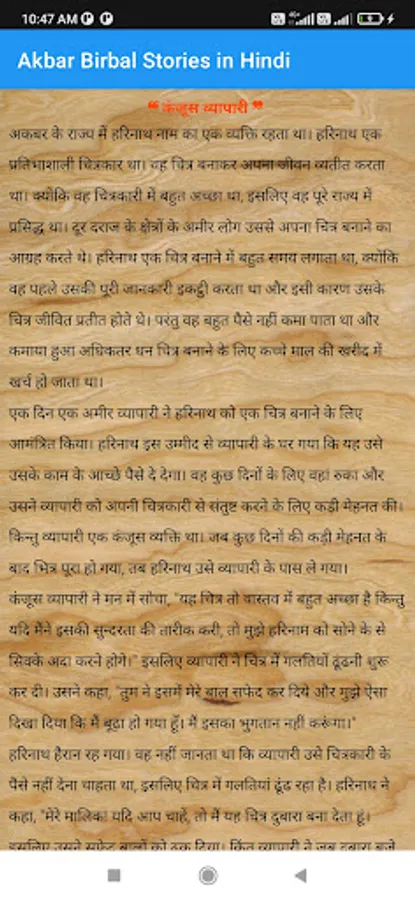 10:47 AM
Akbar Birbal Stories in Hindi
❝ कंजूस व्यापारी ❞
अकबर के राज्य में हरिनाथ नाम का एक व्यक्ति रहता था। हरिनाथ एक
प्रतिभाशाली चित्रकार था। वह चित्र बनाकर अपना जीवन व्यतीत करता
था। क्योंकि वह चित्रकारी में बहुत अच्छा था, इसलिए वह पूरे राज्य में
प्रसिद्ध था। दूर दराज के क्षेत्रों के अमीर लोग उससे अपना चित्र बनाने का
आग्रह करते थे। हरिनाथ एक चित्र बनाने में बहुत समय लगाता था, क्योंकि
वह पहले उसकी पूरी जानकारी इकट्ठी करता था और इसी कारण उसके
चित्र जीवित प्रतीत होते थे। परंतु वह बहुत पैसे नहीं कमा पाता था और
कमाया हुआ अधिकतर धन चित्र बनाने के लिए कच्चे माल की खरीद में
खर्च हो जाता था।
एक दिन एक अमीर व्यापारी ने हरिनाथ को एक चित्र बनाने के लिए
आमंत्रित किया। हरिनाथ इस उम्मीद से व्यापारी के घर गया कि यह उसे
उसके काम के आच्छे पैसे दे देगा। वह कुछ दिनों के लिए वहां रुका और
उसने व्यापारी को अपनी चित्रकारी से संतुष्ट करने के लिए कड़ी मेहनत की।
किन्तु व्यापारी एक कंजूस व्यक्ति था। जब कुछ दिनों की कड़ी मेहनत के
बाद भित्र पूरा हो गया, तब हरिनाथ उसे व्यापारी के पास ले गया।
कंजूस व्यापारी ने मन में सोचा, "यह चित्र तो वास्तव में बहुत अच्छा है किन्तु
यदि मैंने इसकी सुन्दरता की तारीक करी, तो मुझे हरिनाम को सोने के से
सिक्के अदा करने होगे।" इसलिए व्यापारी ने चित्र में गलतियों ढूंढनी शुरू
कर दी। उसने कहा, "तुम ने इसमें मेरे बाल सफेद कर दिये और मुझे ऐसा
दिखा दिया कि मैं बूढ़ा हो गया हूँ। मैं इसका भुगतान नहीं करूंगा।"
हरिनाथ हैरान रह गया। वह नहीं जानता था कि व्यापारी उसे चित्रकारी के
पैसे नहीं देना चाहता था, इसलिए चित्र में गलतियां ढूंढ रहा है। हरिनाथ ने
कहा, "मेरे मालिक! यदि आप चाहें, तो मैं यह चित्र दुबारा बना देता हूं।
इसलिए उसने सफेद बालों को ढक दिया। किंतु व्यापारी ने जब दुबारा बने